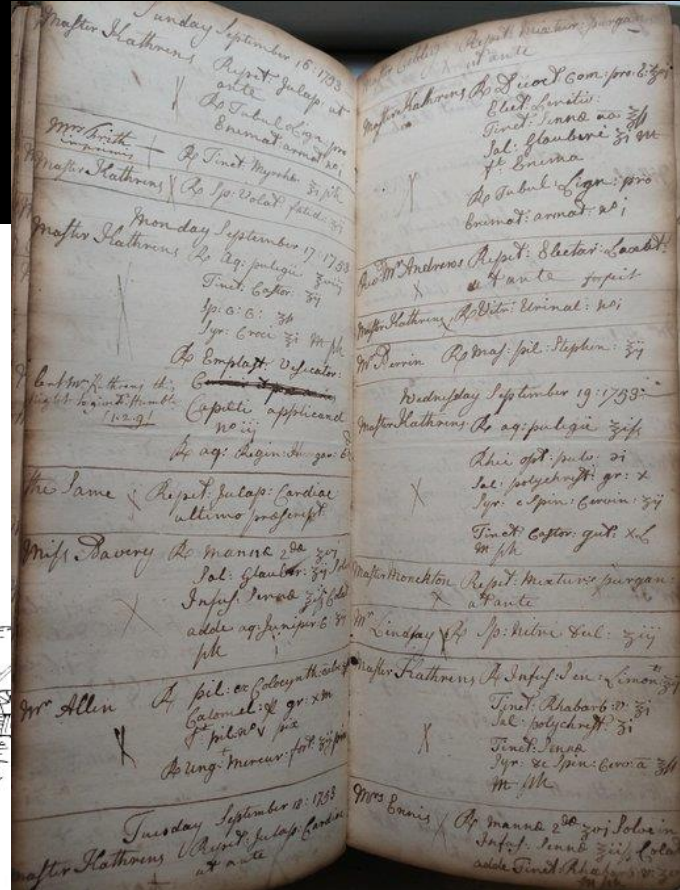 Sunday September 16: 1753
Master Kathrens Repet: Julap: ut
ante
℞ Tubul: Lign: pro
Enemat: armat: no j
Mrs Frith ℞ Tinct: Myrrhæ ʒi ph
Master Kathrens ℞ Sp: Volat: fœtid: ʒij
Monday September 17: 1753
Master Kathrens ℞ Aq: pulegii ʒviij
Tinct: Castor: ʒij
Sp: C: C: ʒß
Syr: Croci ʒi M ph
℞ Emplast: Vesicator:
Capiti applicand
no iij
℞ aq: Regin: Hungar:
lent Mr Kathrens this
the Same Repet: Julap: Cardiac
ultimo præscript:
Miss Davery ℞ Mannæ 2da ʒvj
Sal: Glauber: ʒij
Infus: Sennæ
adde aq: Juniper:
ph
Mr Allen ℞ pil: ex Colocynth:
Calomel: gr: x M
ft pil: no v
℞ Ung: Mercur: fort: ʒij
Tuesday September 18: 1753
Master Kathrens Repet: Julap: Cardiac
ut ante
Repet: Mixtur: purgan
ut ante
Master Kathrens ℞ Decoct Com: pro: E:
Elect: Lenitiv:
Tinct: Sennæ aa ʒß
Sal: Glauberi ʒi M
ft Enema
℞ Tubul: Lign: pro
Enemat: armat: no j
Revd Mr Andrews Repet: Electar:
ut ante
Master Kathrens ℞ Vitr: Urinal: no j
Mr Perrin ℞ Mas: pil: Stephen: ʒij
Wednesday September 19: 1753:
Master Kathrens ℞ aq: pulegii ʒiß
Rhei opt: pulv: ʒi
Sal: polychrest: gr: x
Syr: e Spin: Cervin: ʒij
Tinct Castor: gut: xL
M ph
Master Monckton Repet: Mixtur: purgan:
ut ante
Mr Lindsay ℞ Sp: Nitri dul: ʒiij
Master Kathrens ℞ Infus: Sen: Limon:
Tinct: Rhabarb: v: ʒi
Sal: polychrest: ʒi
Tinct: Sennæ
Syr: de Spin: Cerv: a ʒß
M ph
Mrs Ennis ℞ Mannæ 2dæ ʒvj Solve in
Infus: Sennæ ʒiiß Cola
adde Tinct: Rhabarb: